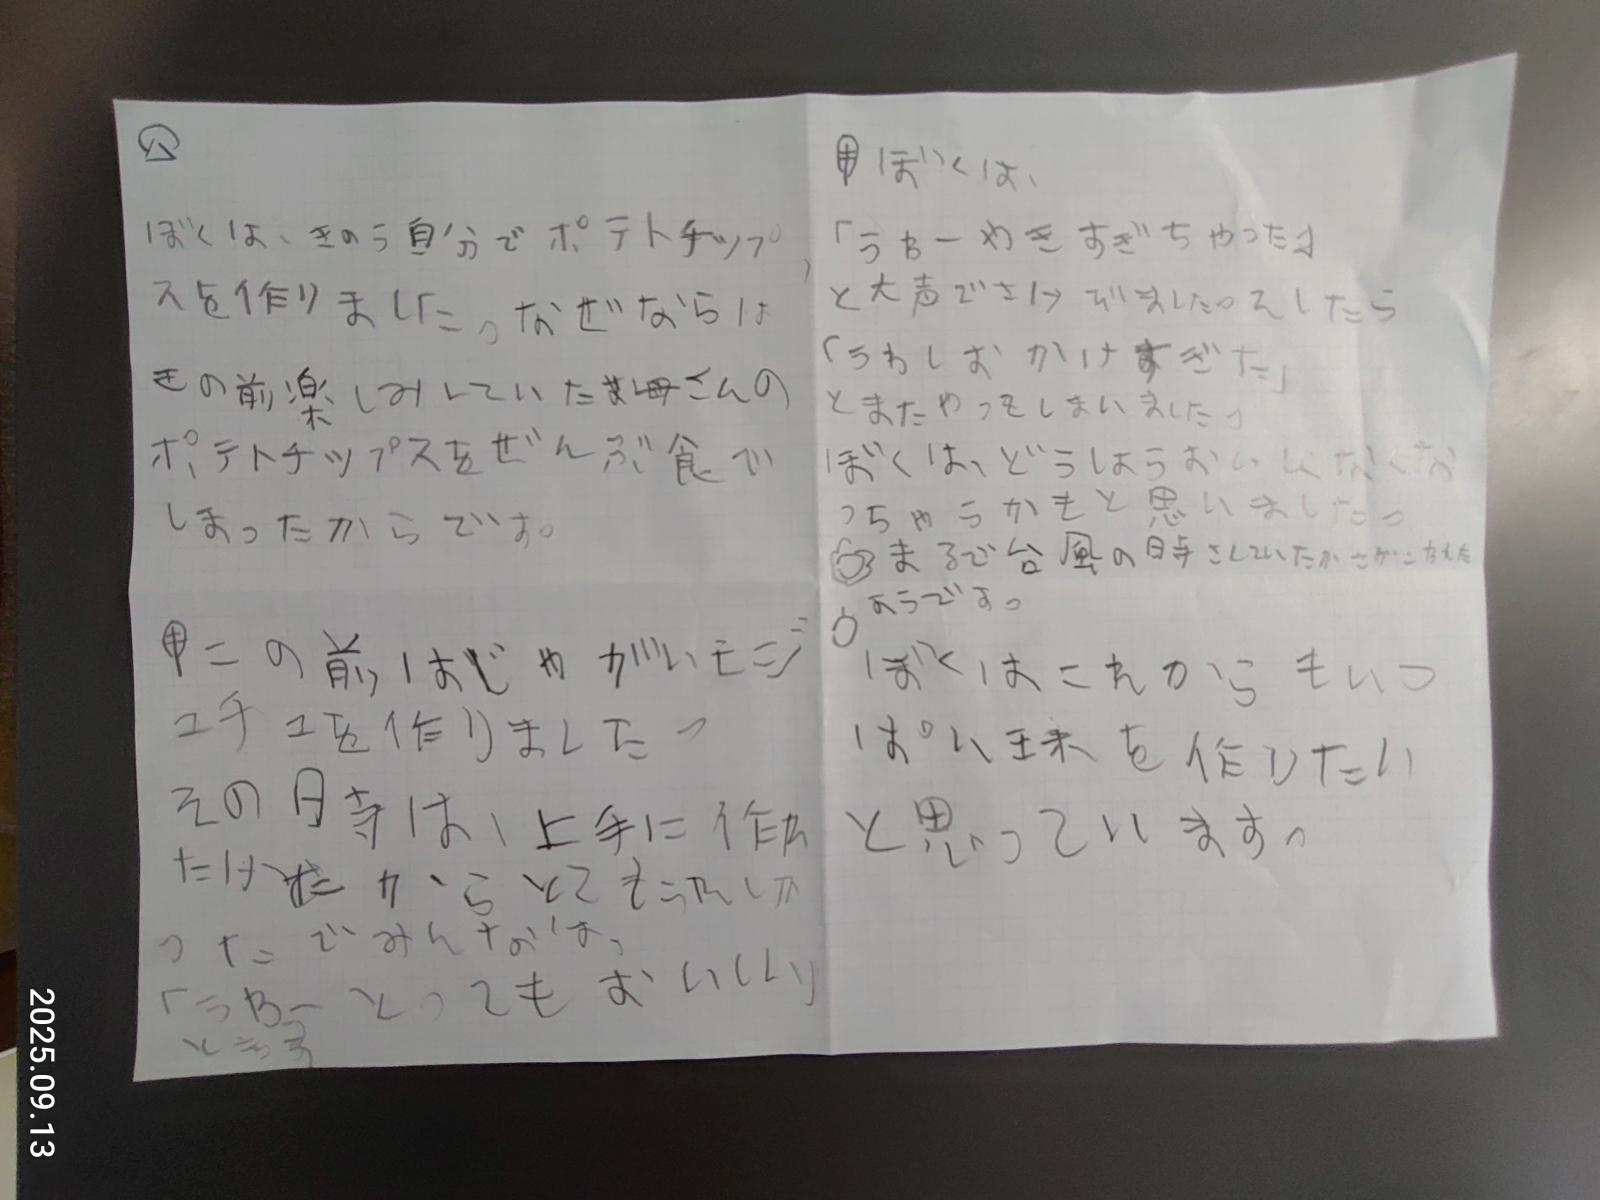 公
ぼくは、きのう自分でポテトチップ
スを作りました。なぜならは
きの前楽しみしていたお母さんの
ポテトチップスをぜんぶ食で
しまったからです。
申この前はじゃがいモジ
ュチュを作りました。
その時は、上手に作れ
ただけ からとてもうれしか
ったでみんなは、
「うわーとってもおいしい」
申ぼくは、
「うわーやきすぎちゃった」
と大声でさけびました。そしたら
「うわしおかけすぎた」
とまたやってしまいました。
ぼくは、どうしようおいしくなくな
っちゃうかもと思いました。
まるで台風の時さしていたかさがこわれた
ようです。
ぼくはこれからもいっ
ぱい味を作りたい
と思っています。
2025.09.13